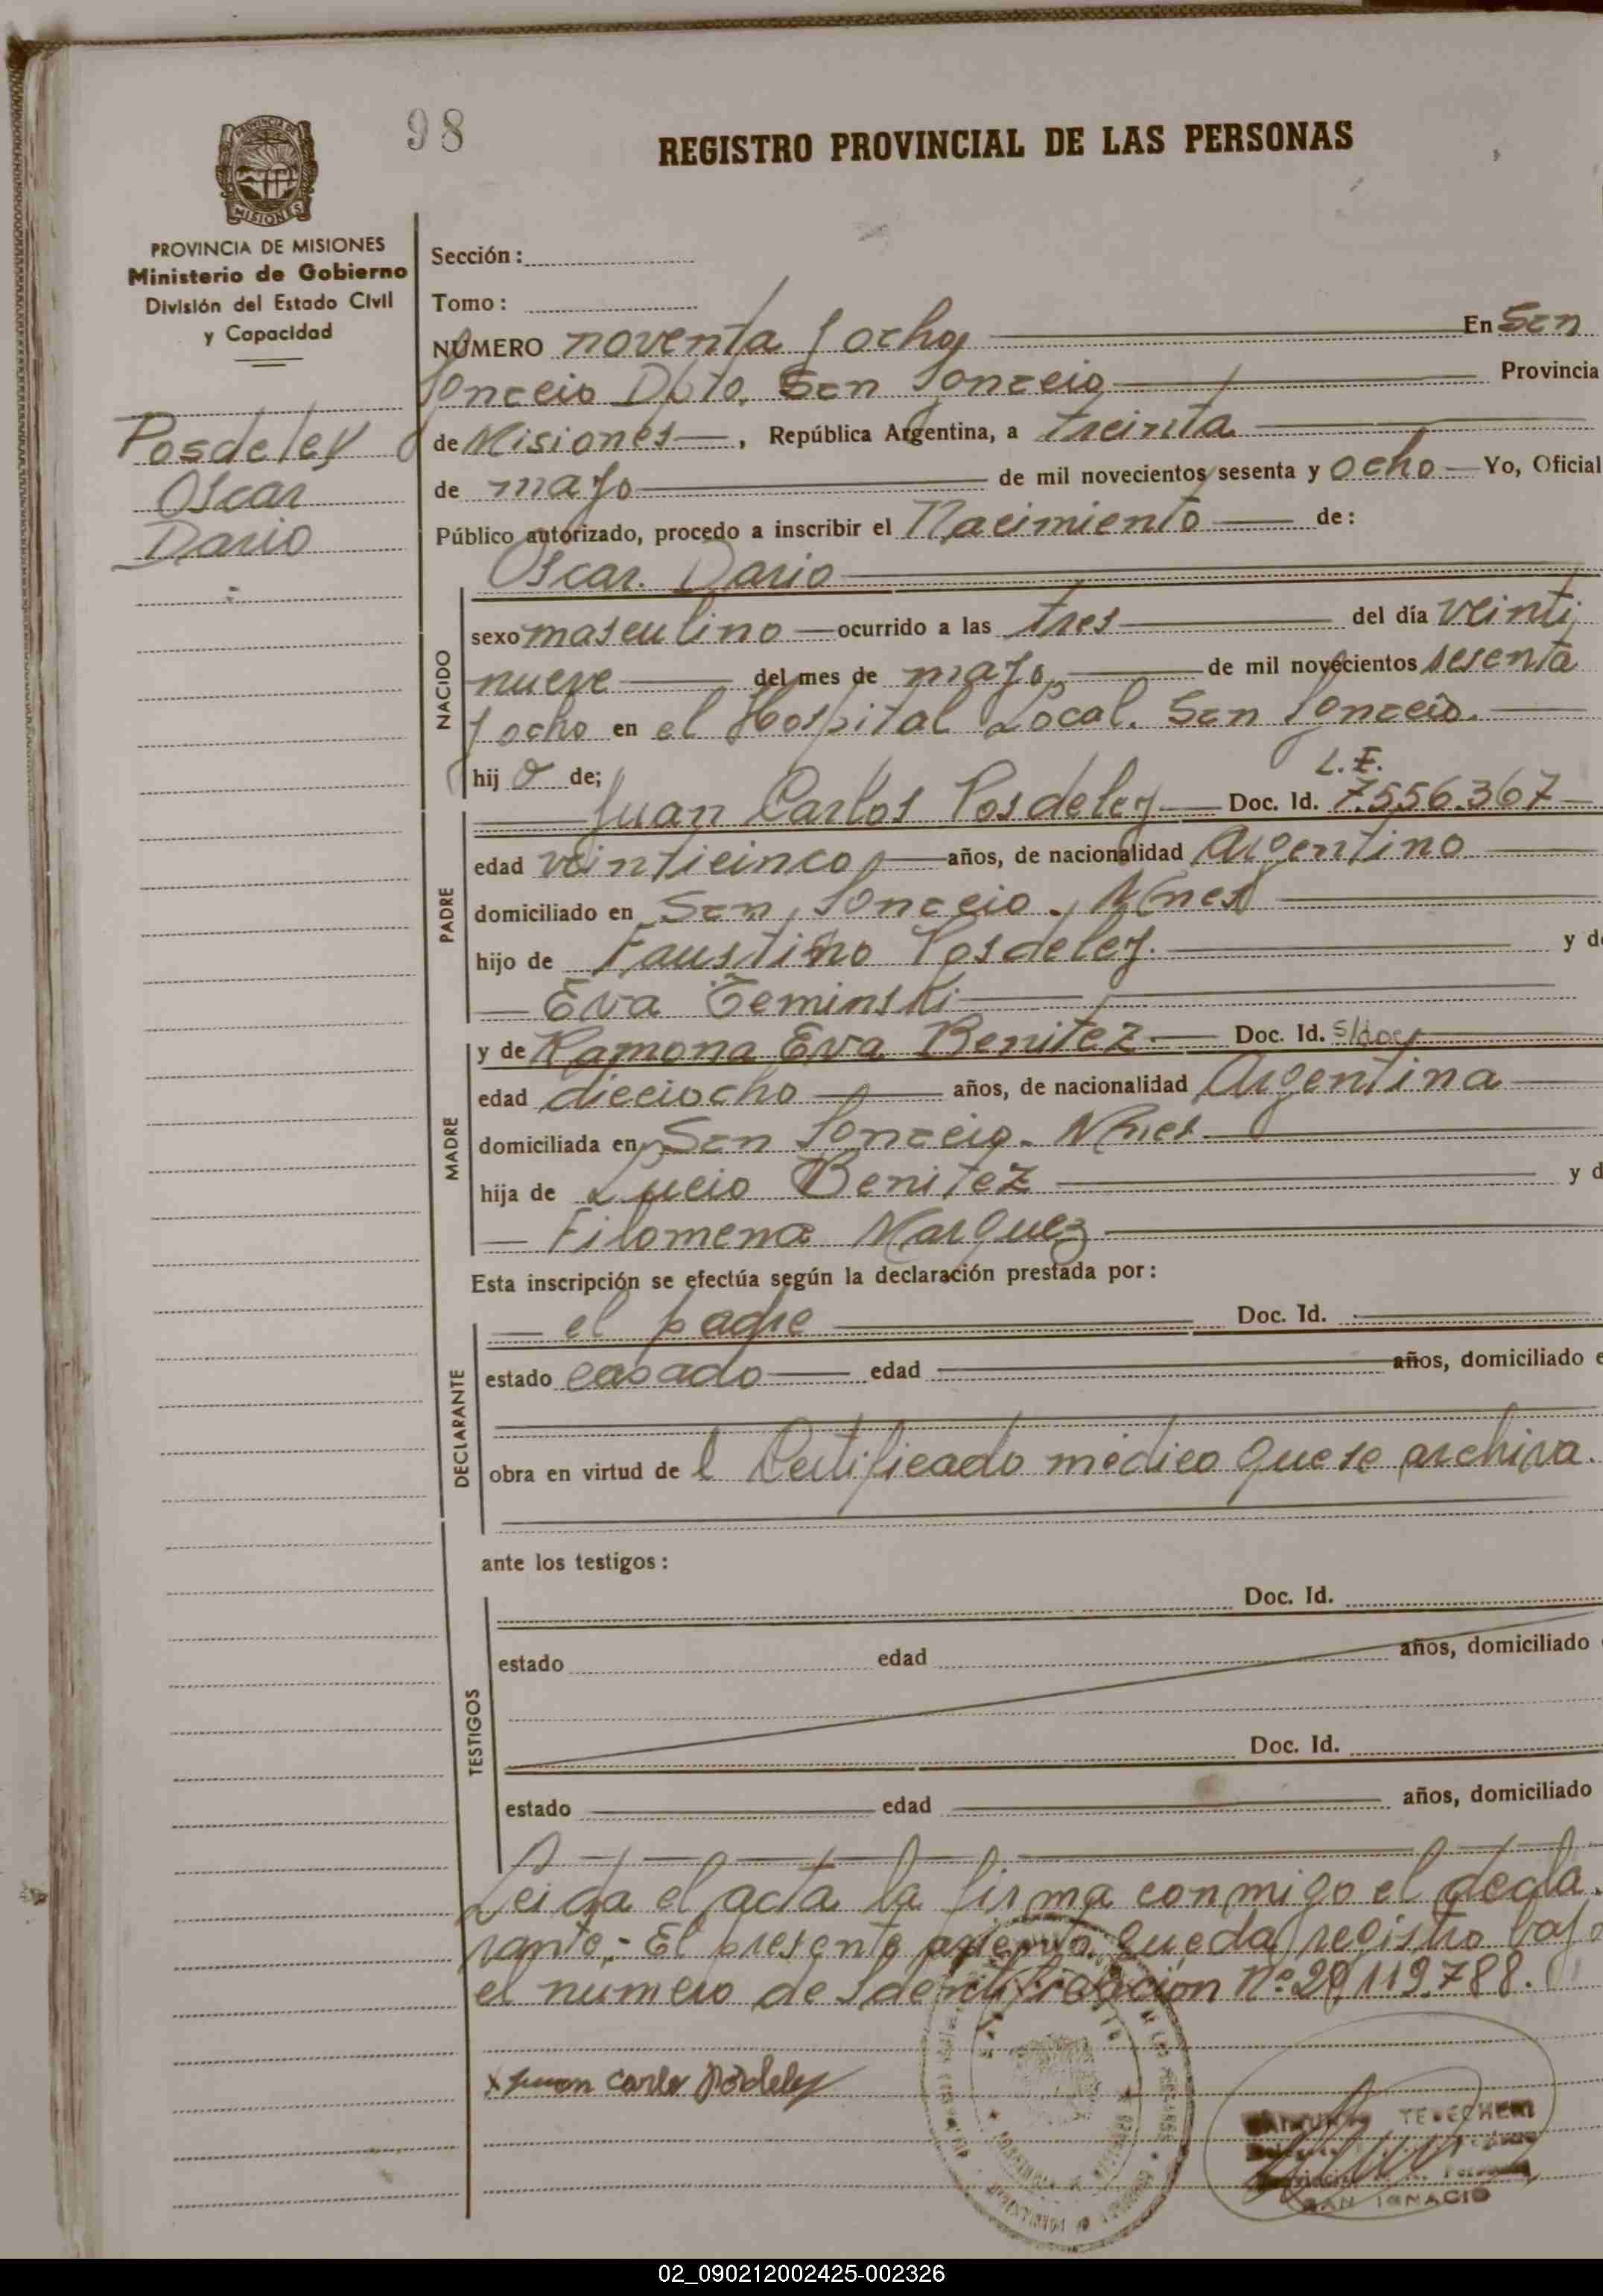 98
REGISTRO PROVINCIAL DE LAS PERSONAS
PROVINCIA DE
MISIONES
PROVINCIA DE MISIONES
Ministerio de Gobierno
División del Estado Civil
y Capacidad
Posdeley
Oscar
Dario
Sección:
Tomo:
NÚMERO noventa y ocho En San
Ignacio Dpto. San Ignacio Provincia
de Misiones, República Argentina, a treinta
de mayo de mil novecientos sesenta y ocho Yo, Oficial
Público autorizado, procedo a inscribir el Nacimiento de:
Oscar Dario
NACIDO
sexo masculino ocurrido a las tres del día veinti
nueve del mes de mayo de mil novecientos sesenta
y ocho en el Hospital Local. San Ignacio.
hijo de;
L.E.
Juan Carlos Posdeley Doc. Id. 7.556.367
PADRE
edad veinticinco años, de nacionalidad Argentino
domiciliado en San Ignacio. Mnes
hijo de Faustino Posdeley. y de
Eva
y de Ramona Eva Benitez Doc. Id. s/doc
MADRE
edad dieciocho años, de nacionalidad Argentina
domiciliada en San Ignacio. Mnes
hija de Lucio Benitez y d
Filomena Marquez
Esta inscripción se efectúa según la declaración prestada por:
el padre Doc. Id.
DECLARANTE
estado casado edad años, domiciliado e
obra en virtud de l Certificado médico que se archiva.
ante los testigos:
Doc. Id.
TESTIGOS
estado edad años, domiciliado
Doc. Id.
estado edad años, domiciliado
Leida el acta la firma conmigo el decla
rante.- El presente queda registro bajo
el numero de Identificación Nº 20,119.788.
x Juan Carlos Posdeley
SAN IGNACIO
02_090212002425-002326